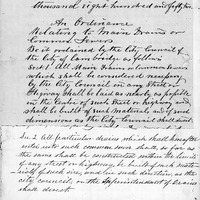 thousand eight hundred and fifty
An Ordinance
Relating to Main Drains or
Common Sewers
Be it ordained by the City Council of
the City of Cambridge as follows
Sect. 1 All Main Drains or Common Sewers
which shall be considered necessary
by the City Council in any Street or
highway shall be laid as nearly as possible
in the center of such street or highway and
shall be built of such materials and of such
dimensions as the City Council shall direct
Sec. 2 All particular drains which shall hereafter
enter into such common sewer shall, so far as
the same shall be constructed within the limits
of any street or highway, be built of such materials
of such size, and in such direction, as the
city council or the Superintendent of Drains
shall direct